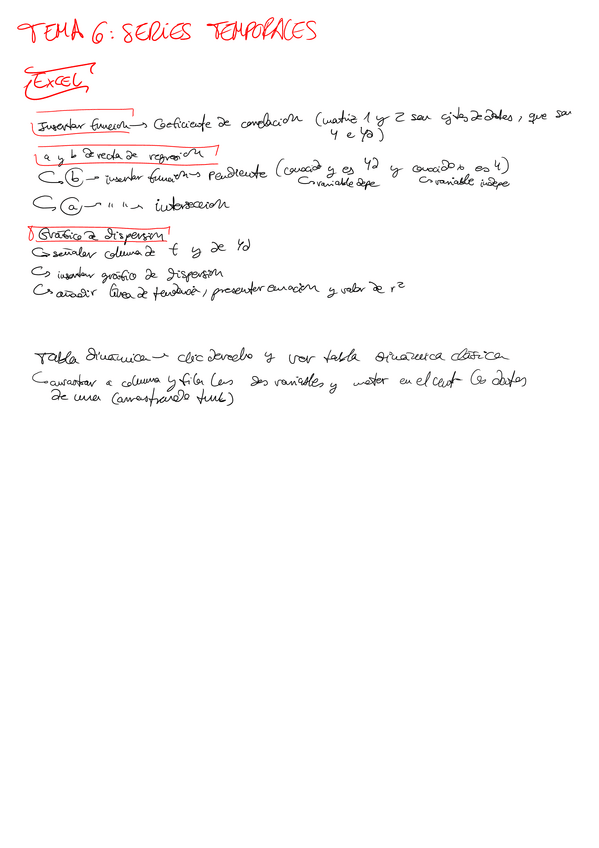 TEMA 6: SERIES TEMPORALES
EXCEL
Insertar función → Coeficiente de correlación (matriz 1 y 2 son cjtos de datos, que son
Y e Yd)
a y b de recta de regresión
b → insertar función → Pendiente (conocido y es Yd y conocido x es Y)
variable depe variable indepe
a → " " → interseccion
Gráfico de dispersión
señalar columna de t y de Yd
insertar gráfico de dispersión
añadir línea de tendencia, presentar ecuación y valor de r²
Tabla dinámica → clic derecho y ver tabla dinámica clásica
arrastrar a columna y fila las dos variables y meter en el los datos
de una (arrastrando tmb)